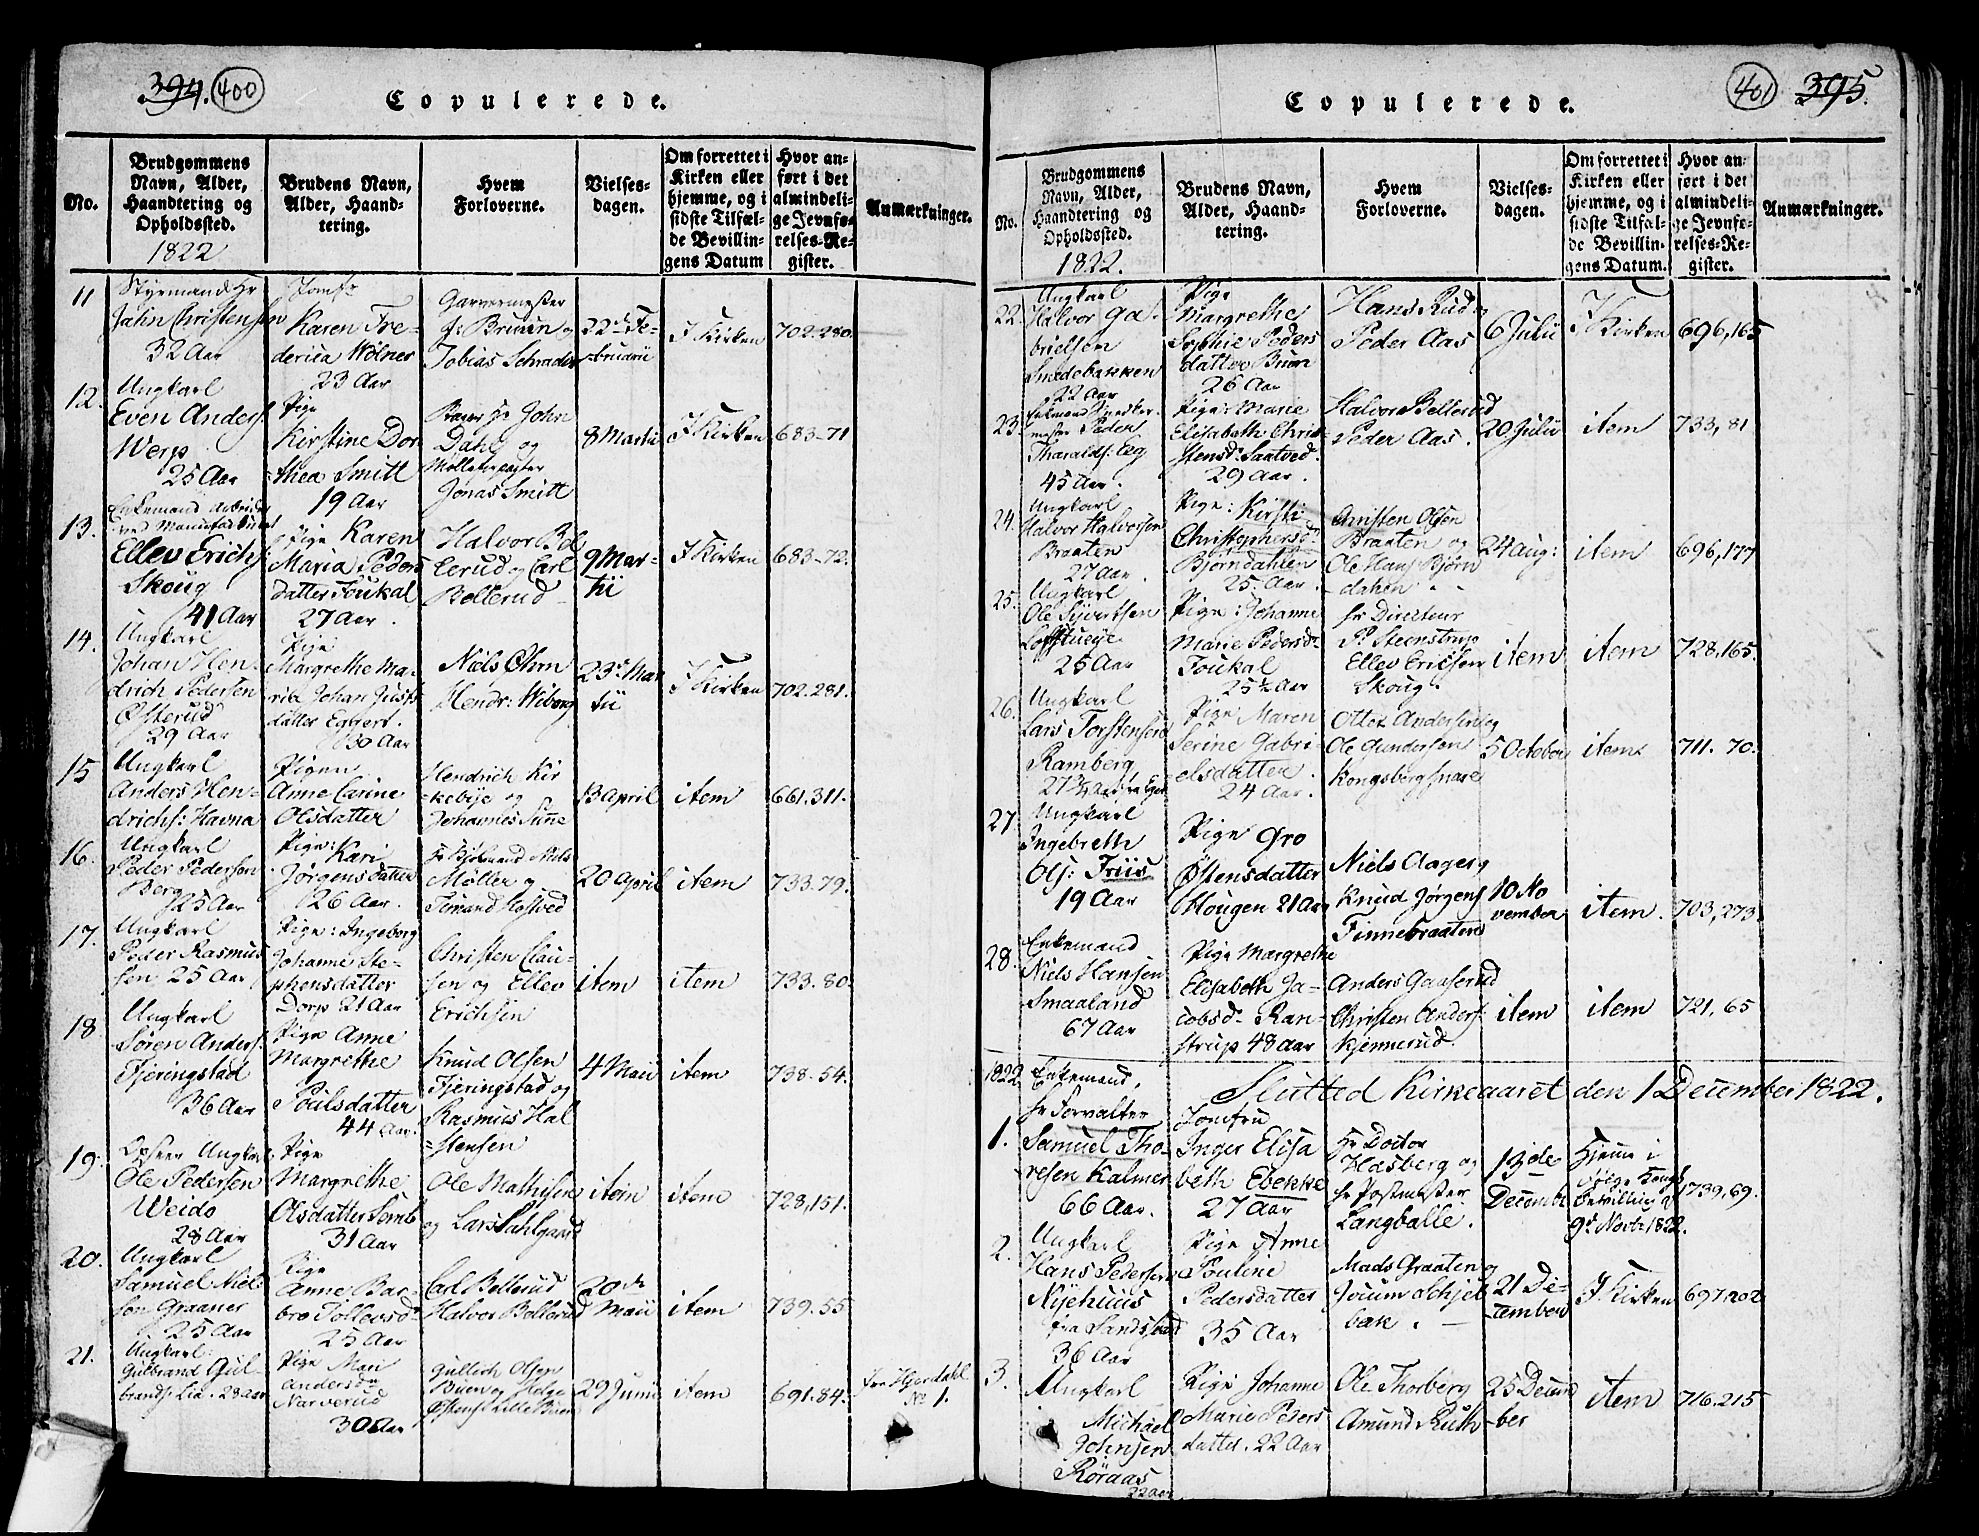 394. 400
Copulerede.
No.
Brudgommens
Navn, Alder,
Haandtering og
Opholdssted.
1822
Brudens Navn,
Alder, Haand-
tering.
Hvem
Forloverne.
Vielses-
dagen.
Om forrettet i
Kirken eller
hjemme, og i
sidste Tilfæl-
de Bevillin-
gens Datum
Hvor an-
ført i det
almindeli-
ge Jevnfø-
relses-Re-
gister.
Anmærkninger.
11
Styrmand Hr
Jahn Christensen
32 Aar
Jomfr
Karen Fre-
derica Wölner
23 Aar
Garvermester
J: Bruun og
Tobias Schrader
22de Fe-
bruarii
I Kirken
702-280.
12.
Ungkarl
Even Anders:
Werp
25 Aar
Pige
Kirstine Dor
thea Smitt
19 Aar
John
Dahl og
Jonas Smitt
8 Martii
I Kirken
683-71
13.
Enkemand Arbeider
Ellev Erichs:
Skoug
41 Aar
Pige Karen
Maria Peders
datter Foukal
27 Aar.
Halvor Bel
lerud og Carl
Bellerud
9 Mar-
tii
I Kirken
683-72.
14.
Ungkarl
Johan Hen-
drich Pedersen
Østerud
29 Aar
Pige
Margrethe Ma-
ria Johan Justs
datter Eggers.
30 Aar
Niels Øhrn
Hendr: Wiborg
23de Mar
tii
I Kirken
702.281.
15
Ungkarl
Anders Hen-
drichs: Havna
Pigen
Anne Carine
Olsdatter
Hendrich Kir
kebye og
Johannes Sinne
13 April
item
661.311.
16.
Ungkarl
Peder Pedersen
Berg
25 Aar
Pige: Kari
Jørgensdatter
26 Aar.
Niels
Møller og
20 April
item
733.79.
17.
Ungkarl
Peder Rasmus
sen 25 Aar
Pige: Ingeborg
Johanne Ste-
phensdatter
Dorp 21 Aar
Christen Clau-
sen og Ellev
Erichsen
item
item
733.80.
18.
Ungkarl
Søren Anders:
Fjeringstad
36 Aar
Pige Anne
Margrethe
Poulsdatter
44 Aar.
Knud Olsen
Fjeringstad og
Rasmus Hal
stensen
4 Maii
item
738-54.
19.
Ungkarl
Ole Pedersen
Weido
28 Aar
Pige
Margrethe
Olsdatter Semb
31 Aar
Ole Mathisen
og Lars Dahlgaard
item
item
728,151.
20.
Ungkarl
Samuel Niel
sen Graaner
25 Aar
Pige
Anne Bar-
bro Tollevsd
25 Aar
Carl Bellerud
Halvor Bellerud
20de
Maii
item
739-55
21.
Ungkarl:
Gulbrand Gul-
brands: Lia. 28 Aar
Pige Mari
Andersdr
Narverud
30 Aar
Gullich Olsen
Buen og Helge
Østens: Lille Buen
29 Junii
item
691.84.
fra Hjerdahl
No 1.
401 395.
Copulerede.
No.
Brudgommens
Navn, Alder,
Haandtering og
Opholdssted.
1822.
Brudens Navn,
Alder, Haand-
tering.
Hvem
Forloverne.
Vielses-
dagen.
Om forrettet i
Kirken eller
hjemme, og i
sidste Tilfæl-
de Bevillin-
gens Datum.
Hvor an-
ført i det
almindeli-
ge Jevnfø-
relses-Re-
gister.
Anmærkninger.
22.
Ungkarl
Halvor Ga-
brielsen
Smedebakken
22 Aar
Pige
Margrethe
Sophie Peders
datter Buen
26 Aar
Hans Rud og
Peder Aas
6 Julii
I Kirken
696,165
23.
Enkemand Snedker-
mester Peder
Tharalds: Eeg
45 Aar.
Pige: Marie
Elisabeth Chris-
stensd: Saatved.
29 Aar.
Halvor Bellerud
Peder Aas.
20 Julii
item
733,81
24.
Ungkarl
Halvor Halvorsen
Braaten
27 Aar
Pige: Kirsti
Christophersd
Bjørndahlen
25 Aar
Christen Olsen
Braaten og
Ole Hans: Bjørn
dahlen
24 Aug:
item
696,177
25.
Ungkarl
Ole Syvertsen
Loffstueye
25 Aar
Pige: Johanne
Marie Pedersd
Foukal
25½ Aar
Hr Directeur
P: Steenstrup
Ellev Ericksen
Skoug.
item
item
728,165.
26.
Ungkarl
Lars Torstensen
Ramberg
Pige Maren
Serine Gabri
elsdatter.
24 Aar.
Otter Andersen og
Ole Gundersen
Kongsberg
5 October
item
711. 70.
27
Ungkarl
Ingebreth
Ols: Friis
19 Aar
Pige Gro
Østensdatter
Mougen 21 Aar
Niels Aager og
Knud Jørgens
Finnebraaten
10 No
vember
item.
703,273
28.
Enkemand
Niels Hansen
Smaaland
67 Aar
Pige Margrethe
Elisabeth Ja-
cobsd. Ran-
strup 48 Aar
Anders Gaaserud
Christen Anders:
Kjennerud.
item
item
721, 65
1822
Sluttet Kirkeaaret den 1 December 1822.
1.
Enkemand,
Hr Forvalter
Samuel Tho-
resen Kalmer
66 Aar.
Jomfru
Inger Elisa
beth Ebekke
27 Aar
Hr Doctor
Hasberg og
Hr Postmester
Langballe.
13de
Decemb
Hjemme i
følge Kongl
Bevilling af
9de Novbr 1822.
739,69.
2.
Ungkarl
Hans Pedersen
Nyehuus
fra Sandsverd
36 Aar
Pige Anne
Pouline
Pedersdatter
35 Aar
Mads Graaten og
Jocum Schjel
bæk.
21 De-
cember
I Kirken
697,202
3.
Ungkarl
Michael
Johnsen
Røraas
22 Aar
Pige Johanne
Marie Peders
datter. 22 Aar
Ole Thorberg
Amund Ruth
25 Decem
ber
item
716.215